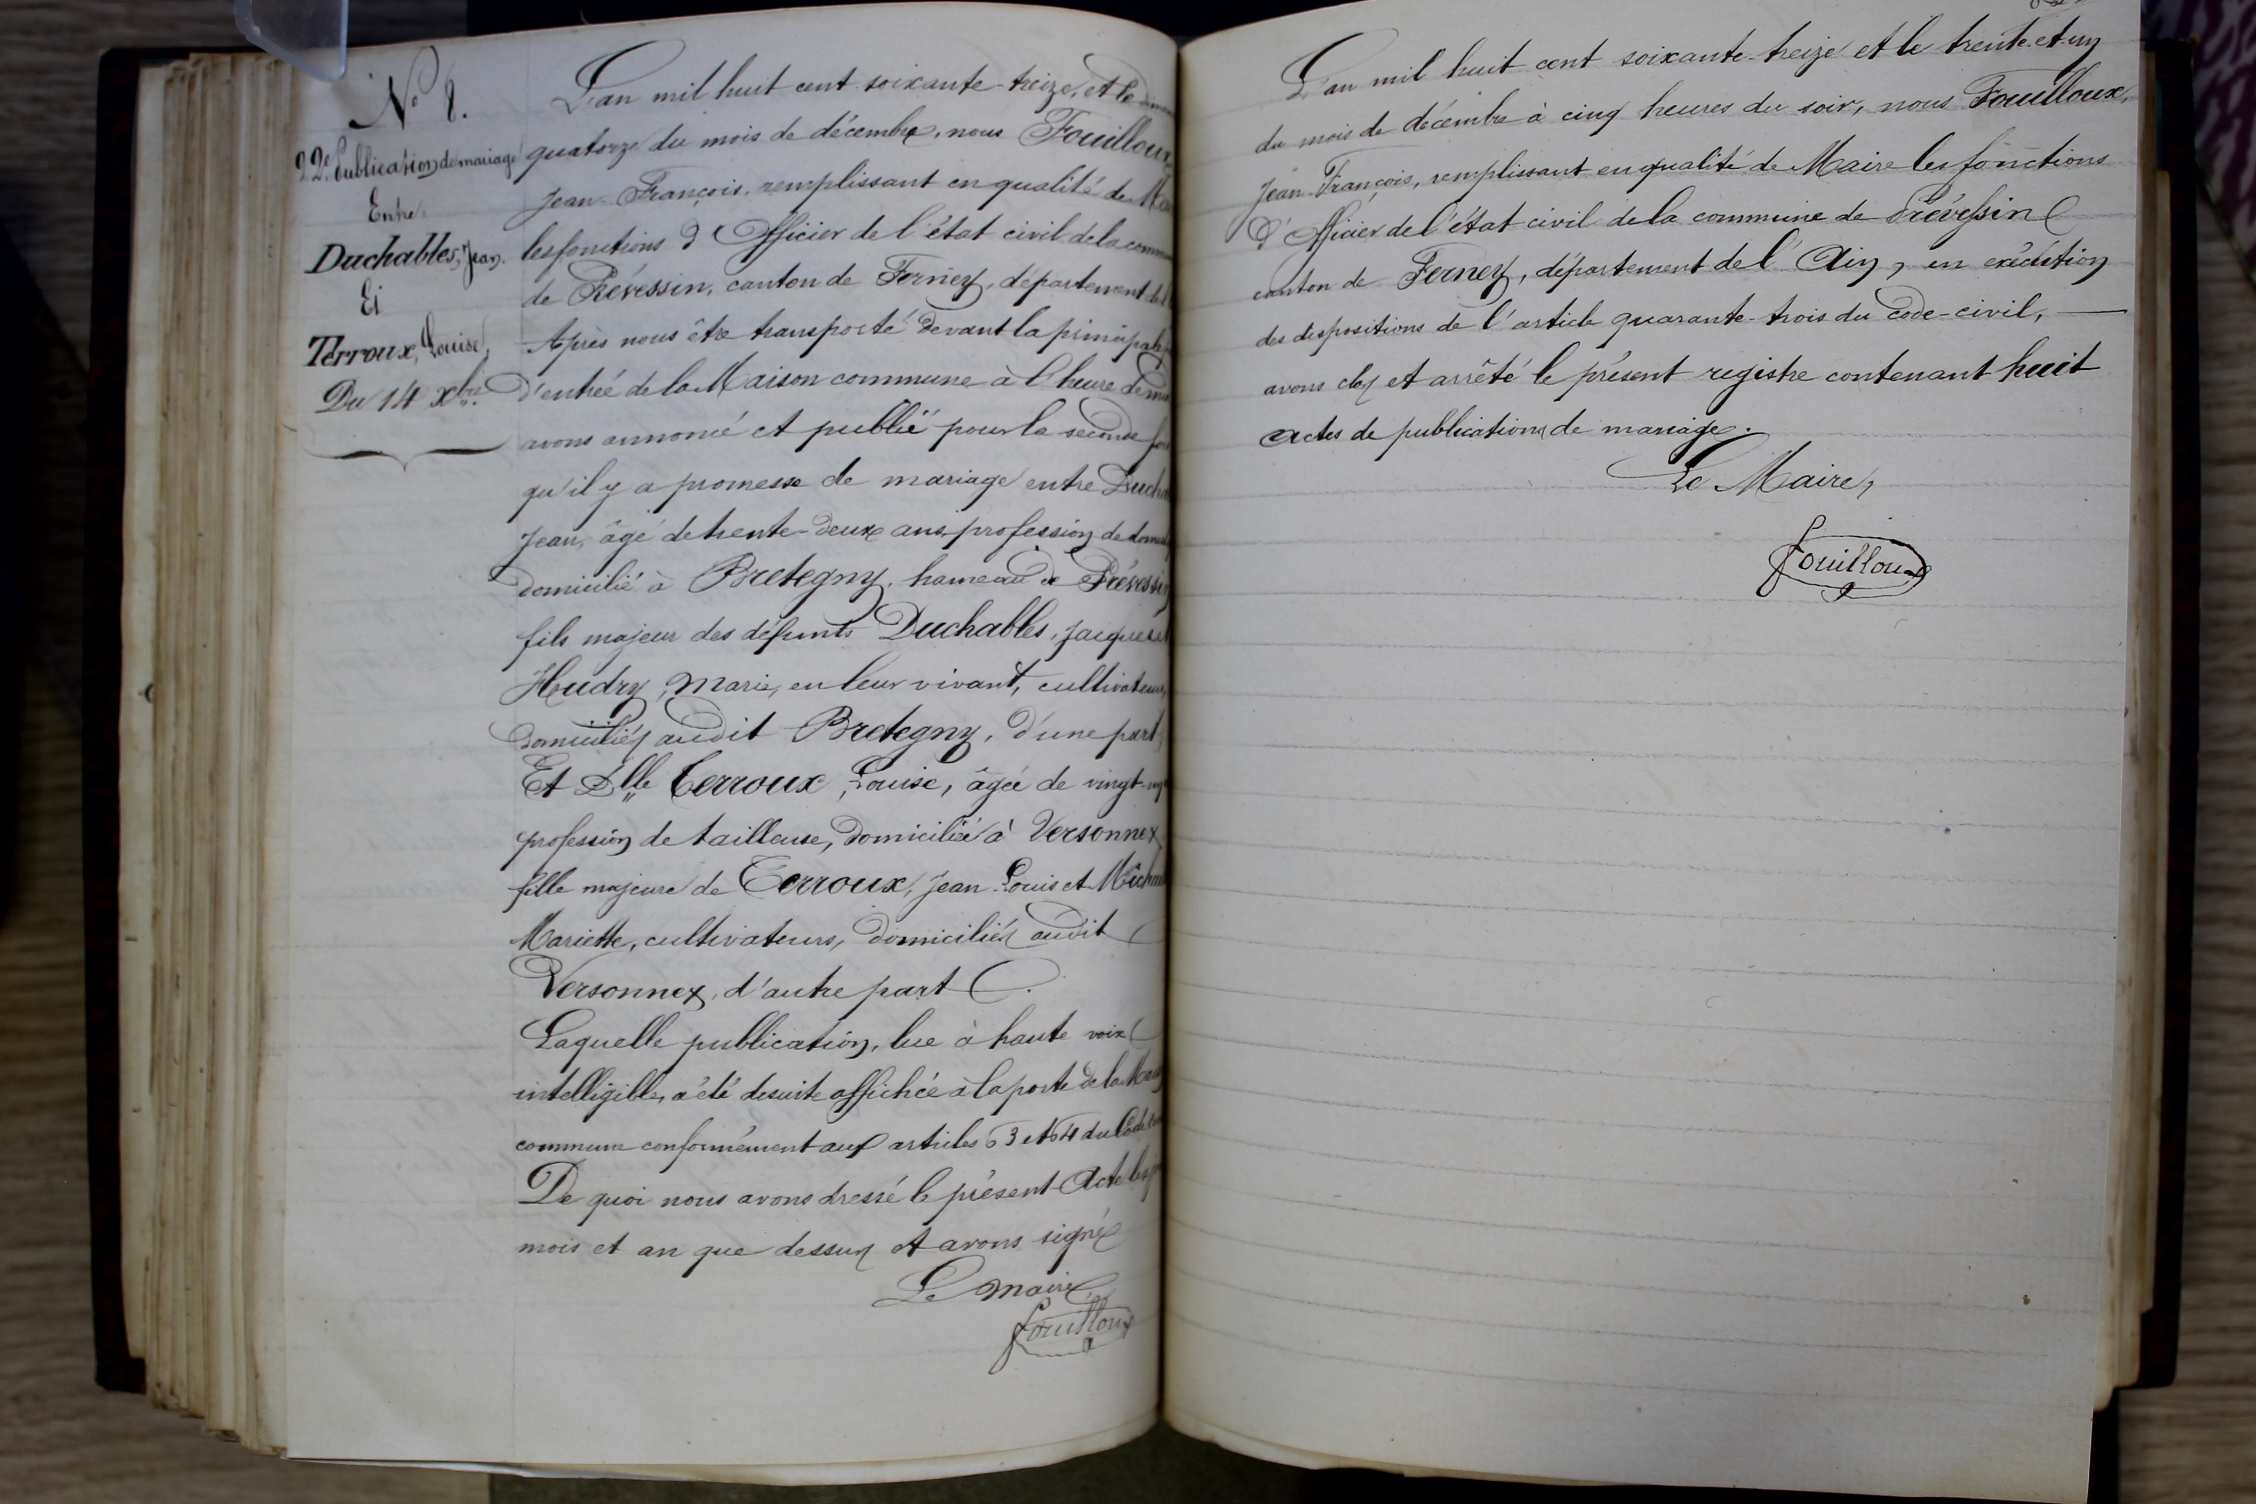 Nº 8.
2de Publication de mariage
Entre
Duchables, Jean.
Et
Terroux, Louise,
Du 14 Xbre
L'an mil huit cent soixante-treize, et le
quatorze du mois de décembre, nous Fouilloux,
Jean-François, remplissant en qualité de
les fonctions d'Officier de l'état civil de la
de Prévessin, canton de Ferney, département
Après nous être transporté devant la principale
d'entrée de la Maison commune à l'heure de
avons annoncé et publié pour la seconde
qu'il y a promesse de mariage entre
Jean, âgé de trente-deux ans, profession de
domicilié à Bretegny, hameau de Prévessin
fils majeur des défunts Duchables, Jacques et
Hudry, Marie, en leur vivant, cultivateurs,
domiciliés audit Bretegny, d'une part,
Et Dlle Terroux, Louise, âgée de vingt-
profession de tailleuse, domiciliée à Versonnex
fille majeure de Terroux, Jean-Louis et
Mariette, cultivateurs, domiciliés audit
Versonnex, d'autre part.
Laquelle publication, lue à haute voix
intelligible, a été desuite affichée à la porte de la
commune conformément aux articles 63 et 64 du Code
De quoi nous avons dressé le présent Acte les
mois et an que dessus et avons signé
Le Maire
Fouilloux
L'an mil huit cent soixante-treize et le trente-et-un
du mois de décembre à cinq heures du soir, nous Fouilloux,
Jean-François, remplissant en qualité de Maire les fonctions
d'Officier de l'état civil de la commune de Prévessin
canton de Ferney, département de l'Ain, en exécution
des dispositions de l'article quarante-trois du Code-civil,
avons clos et arrêté le présent registre contenant huit
actes de publications de mariage.
Le Maire,
Fouilloux